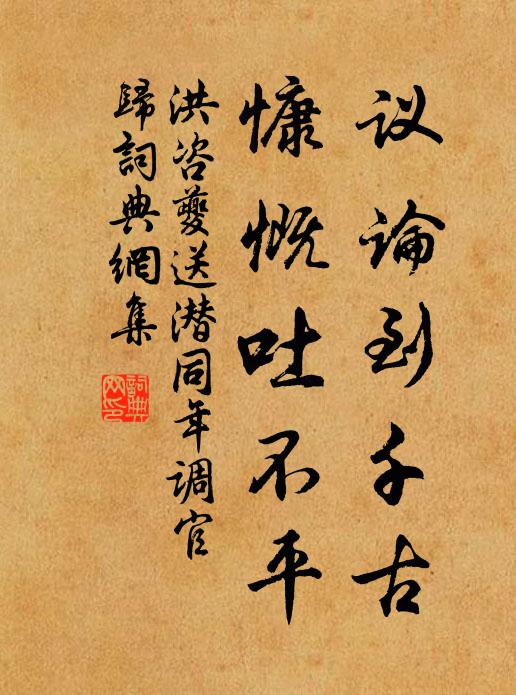 议论到千古
慷慨吐不平
洪咨夔送潜同年调官
歸詞典網集
詞典
网印